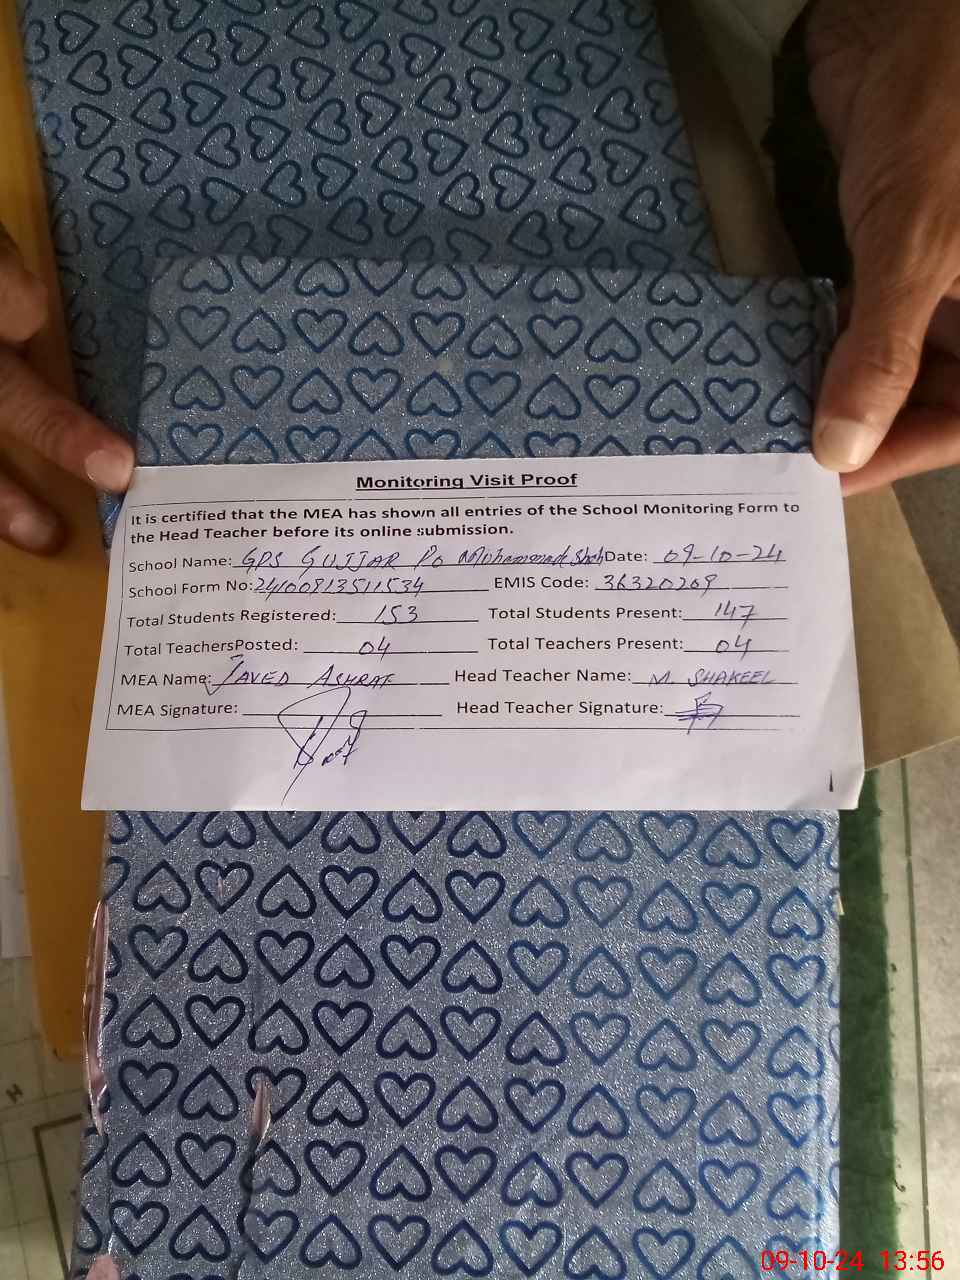 Monitoring Visit Proof
It is certified that the MEA has shown all entries of the School Monitoring Form to
the Head Teacher before its online submission.
School Name: GPS GUJJAR PO Mohammad Shah Date: 09-10-24
School Form No: 24100913511534 EMIS Code: 36320209
Total Students Registered: 153 Total Students Present: 147
Total TeachersPosted: 04 Total Teachers Present: 04
MEA Name: JAVED ASHRAF Head Teacher Name: M. SHAKEEL
MEA Signature: Head Teacher Signature:
09-10-24 13:56